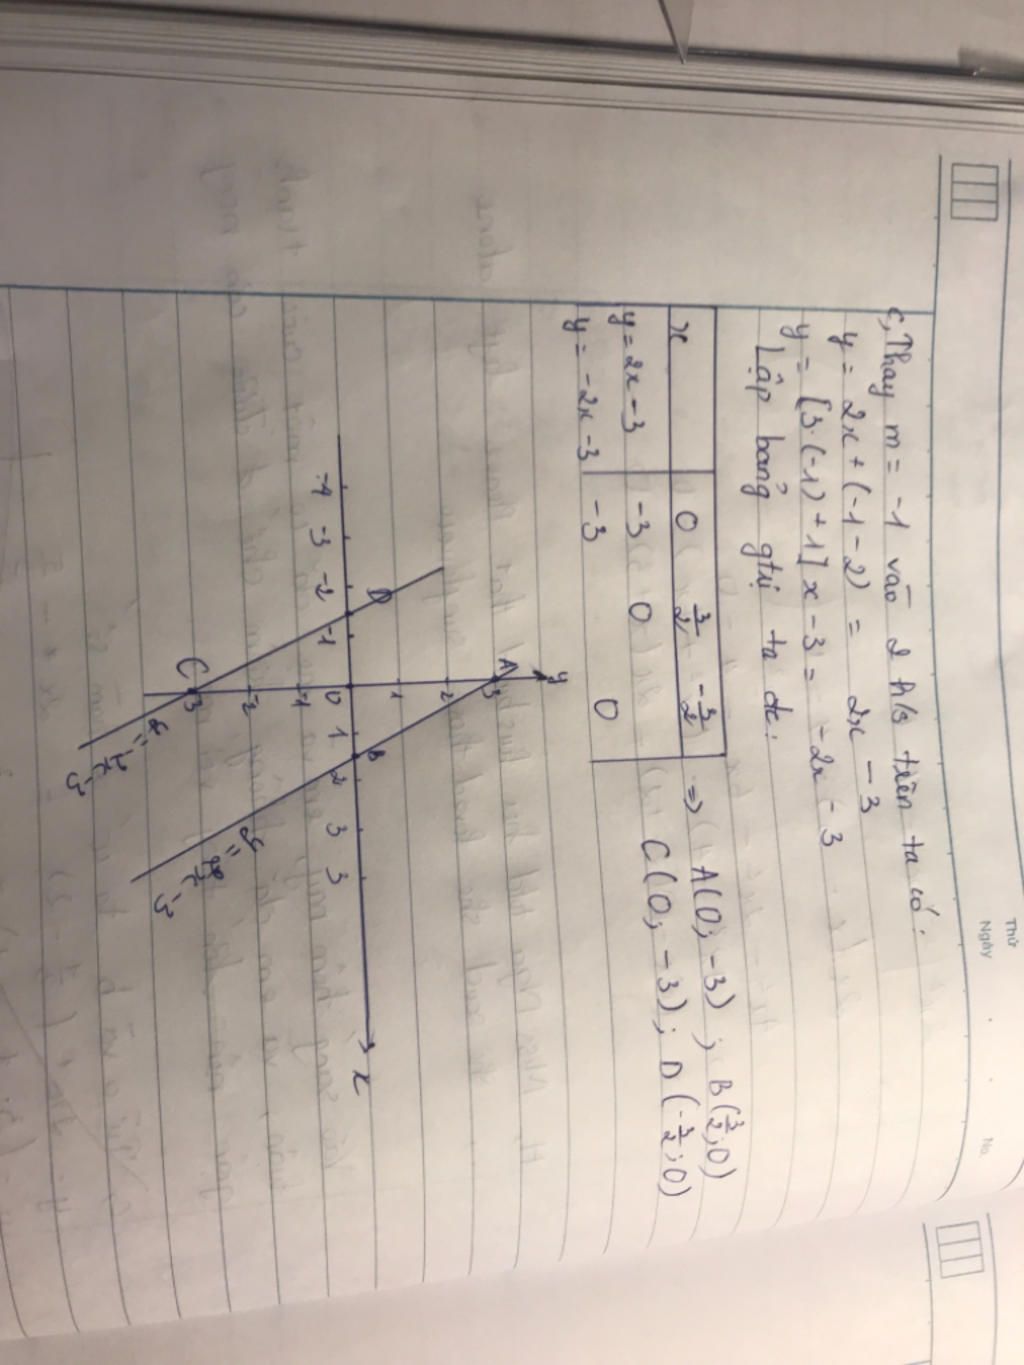 Thứ
Ngày
No.
c, Thay m = -1 vào 2 h/s trên ta có:
y = 2x + (-1-2) = 2x - 3
y = [3.(-1)+1] x - 3 = -2x - 3
Lập bảng gtrị ta đc:
x 0 3/2 -3/2 => A(0; -3) ; B(3/2; 0)
y = 2x - 3 -3 0 C(0; -3); D(-3/2; 0)
y = -2x - 3 -3 0
y
A 3
2
1
D
-4 -3 -2 -1 0 1 B 2 3 3 x
-1
-2
C -3